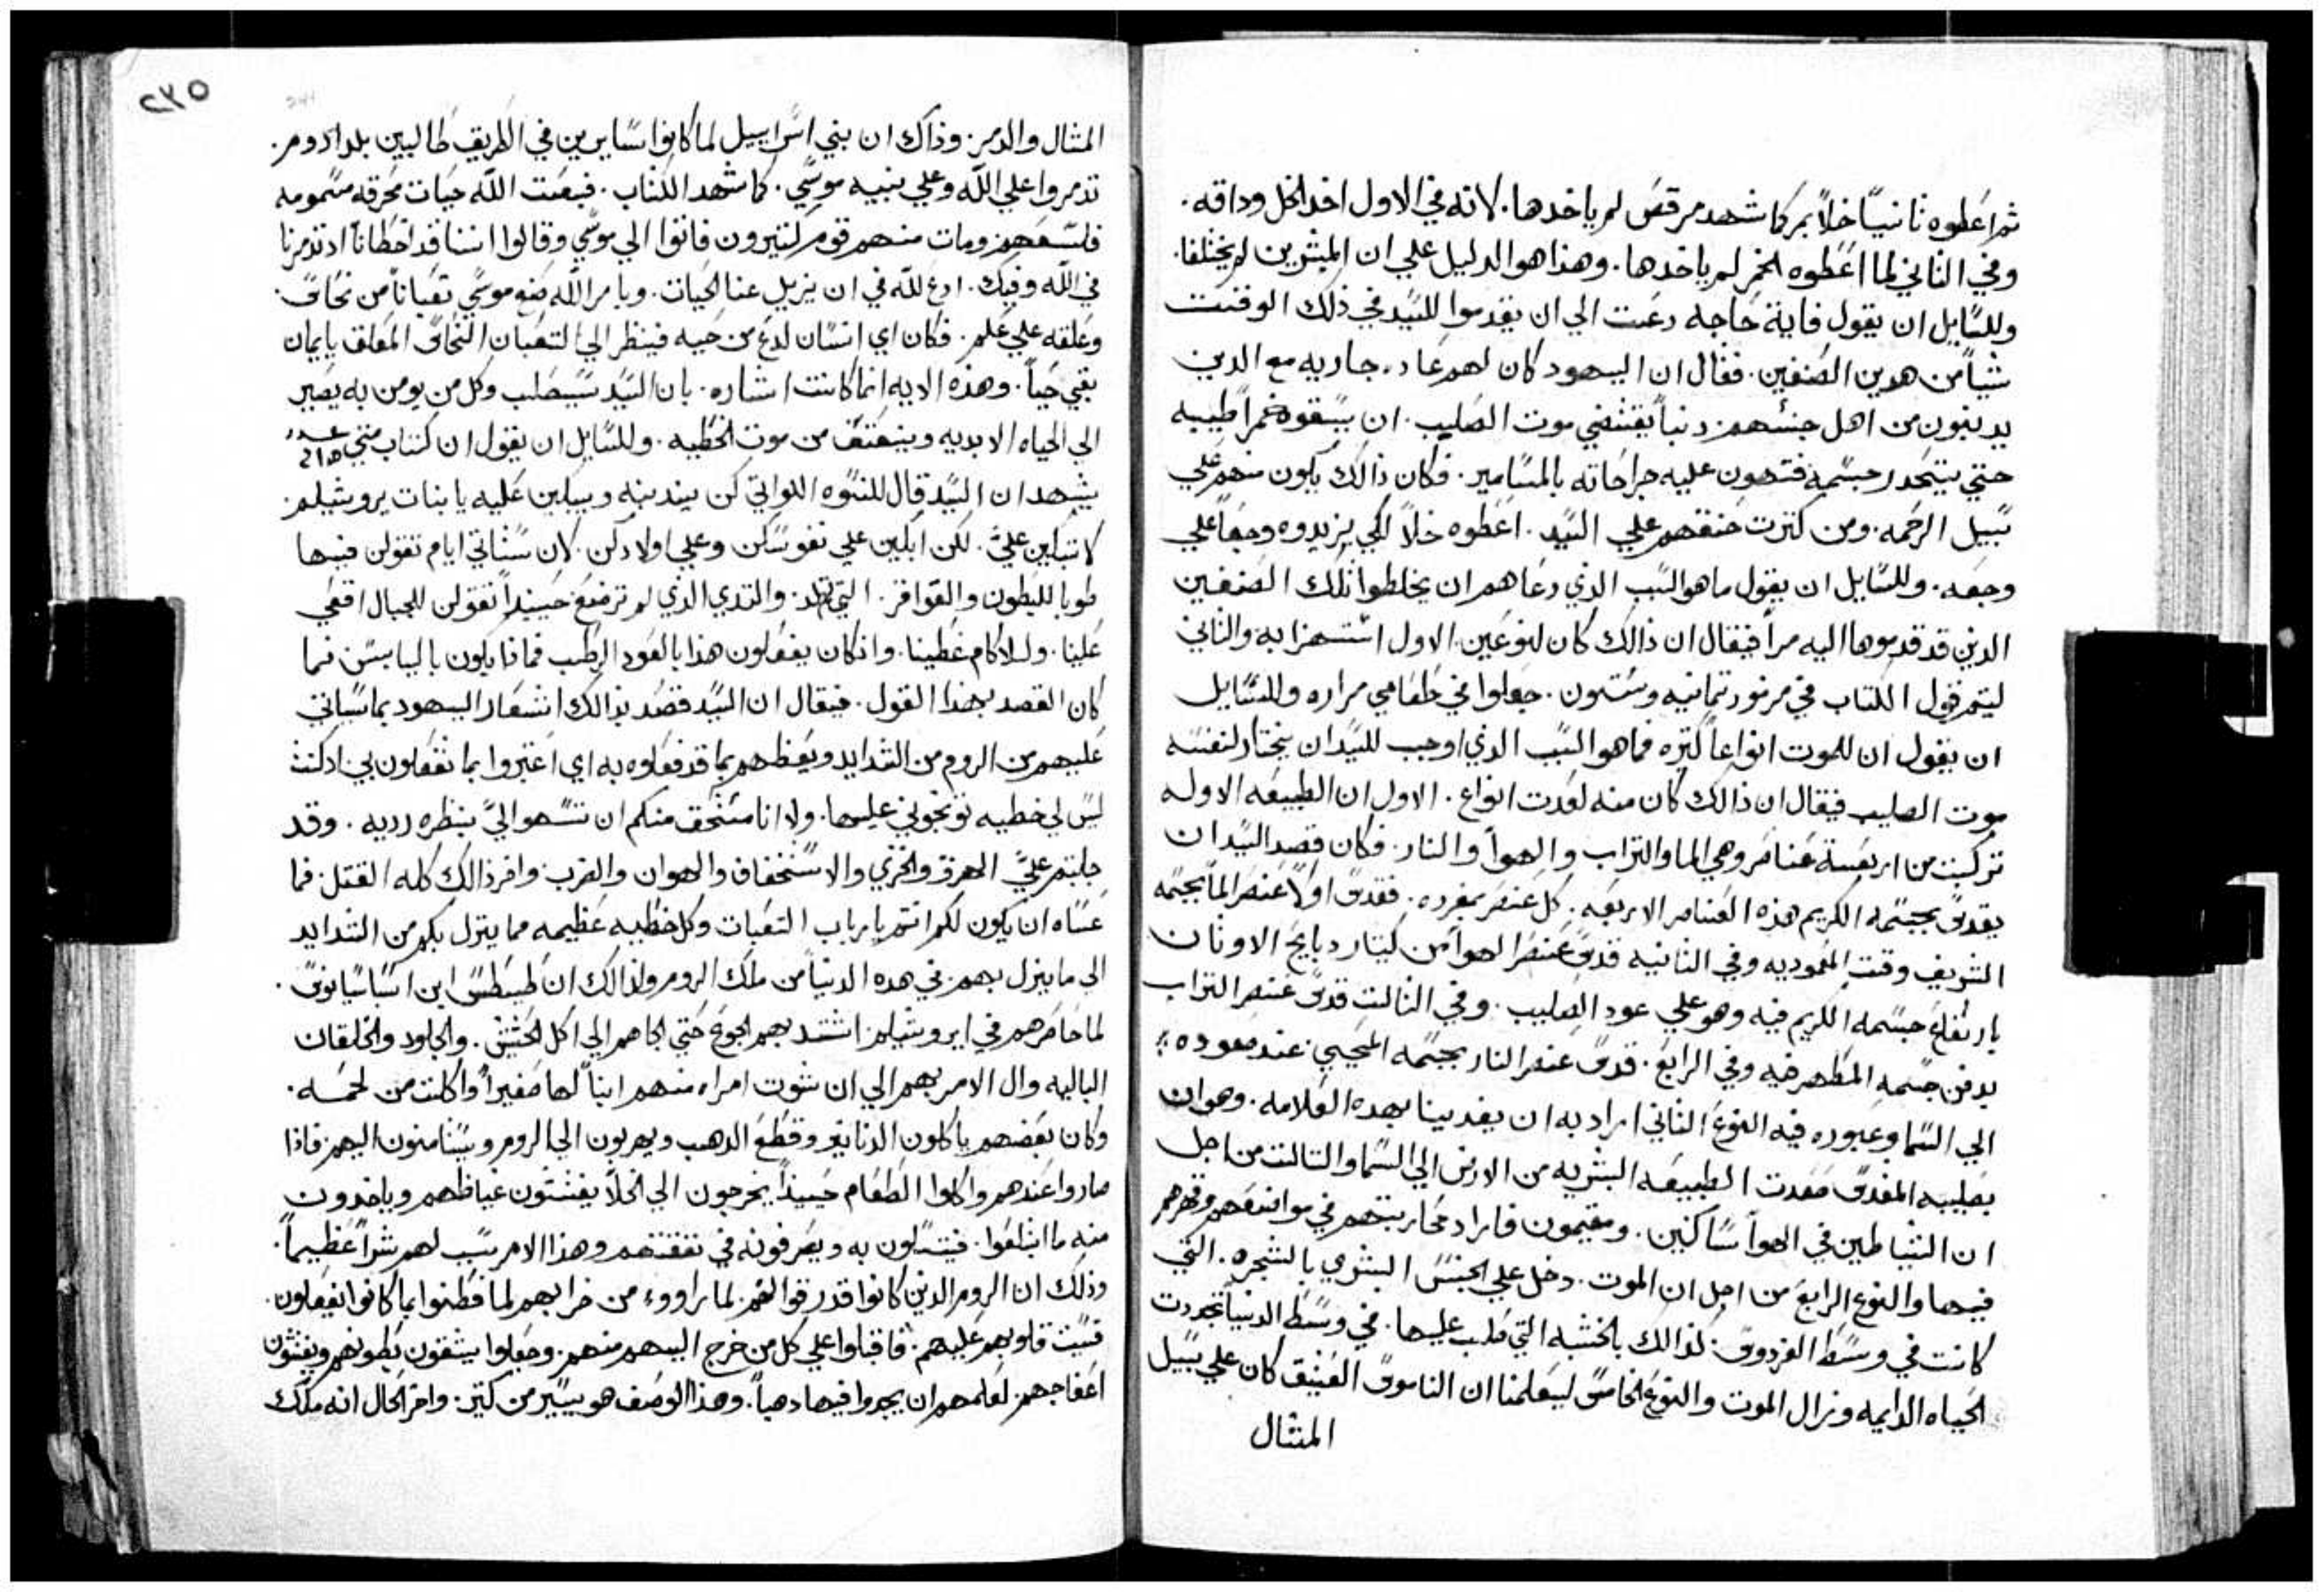 ثم اعطوه ثانيًا خلاً بمر كما شهد مرقص لم ياخدها. لانه في الاول اخد الخل وداقه.
وفي الثاني لما اعطوه الخمر لم ياخدها. وهذا هو الدليل علي ان المبشرين لم يختلفا.
وللسايل ان يقول فاية حاجه دعت الي ان يقدموا للسيد في ذلك الوقت
شياً من هدين الصنفين. فقال ان اليهود كان لهم عاده جاريه مع الدين
يدنبون من اهل جنسهم دنباً يقتضي موت الصليب. ان يسقوه خمراً طيبه
حتي يتخدر جسمه فتهون عليه جراحاته بالمسامير. فكان ذالك يكون منهم علي
سبيل الرحمه. ومن كترت حنقهم علي السيد. اعطوه خلاً لكي يزيدوه وجعاً علي
وجعه. وللسايل ان يقول ما هو السبب الذي دعاهم ان يخلطوا تلك الصنفين
الدين قد قدموها اليه مراً فيقال ان ذالك كان لنوعين. الاول استهزا به والثاني
ليتم قول الكتاب في مزمور تمانيه وستون. جعلوا في طعامي مراره وللسايل
ان يقول ان للموت انواعاً كتيره فما هو السبب الذي اوجب للسيد ان يختار لنفسه
موت الصليب فيقال ان ذالك كان منه لعدت انواع. الاول ان الطبيعه الاوله
تركبت من اربعة عناصر وهي الما والتراب والهوا والنار. فكان قصد السيد ان
يقدس بجسمه الكريم هذه العناصر الاربعه. كل عنصر بمفرده. فقدس اولاً عنصر الما بجسمه
الشريف وقت المعموديه وفي الثانيه قدس عنصر الهوا من كيتار دبايح الاوتان
بارتفاع جسمه الكريم فيه وهو علي عود الصليب. وفي التالت قدس عنصر التراب
بدفن جسمه المطهر فيه وفي الرابع. قدس عنصر النار بجسمه المحيي عند صعوده
الي السما وعبوره فيه النوع الثاني اراد به ان يفدينا بهده العلامه. وهو ان
بصليبه المقدس صعدت الطبيعه البشريه من الارض الي السما والتالت من اجل
ان الشياطين في الهوا ساكنين. ومقيمون فاراد محاربتهم في مواضعهم وقهرهم
فيها والنوع الرابع من اجل ان الموت. دخل علي الجنس البشري بالشجره. التي
كانت في وسط الفردوس. لذالك بالخشبه التي صلب عليها. في وسط الدنيا تجددت
الحياه الدايمه وزال الموت والنوع الخامس ليعلمنا ان الناموس العتيق كان علي سبيل
المثال
٢٣٥
المثال والرمز. وذاك ان بني اسراييل لما كانوا سايرين في الطريق طالبين بلد ادوم.
تذمروا علي الله وعلي نبيه موسي. كما شهد الكتاب. فبعت الله حيات محرقه مسمومه
فلسعهم ومات منهم قوم كتيرون فاتوا الي موسي وقالوا اننا قد اخطانا اد تدمرنا
في الله وفيك. ادع لله في ان يزيل عنا الحيات. وبامر الله صنع موسي تعباناً من نحاس.
وعلقه علي علم. فكان اي انسان لدغ من حيه فينظر الي التعبان النحاس المعلق بايمان
بقي حياً. وهذه الايه انما كانت اشاره. بان السيد سيصلب وكل من يومن به يصير
الي الحياه الابديه وينعتق من موت الخطيه. وللسايل ان يقول ان كتاب متي
يشهد ان السيد قال للنسوه اللواتي كن يندبنه ويبكين عليه يا بنات يروشليم
لا تبكين عليَّ. لكن ابكين علي نفوسكن وعلي اولادكن. لان ستاتي ايام تقولن فيها
طوبا للبطون والعواقر. التي لم تلد. والتدي الذي لم ترضع حينيداً تقولن للجبال اقعي
علينا. وللاكام غطينا. وان كان يفعلون هذا بالعود الرطب فماذا يكون باليابس فما
كان القصد بهذا القول. فيقال ان السيد قصد بذالك اشعار اليهود بما سياتي
عليهم من الروم من الشدايد ويعظهم بما قد فعلوه به اي اعتبروا بما تفعلون بي اد كنت
ليس لي خطيه توبخوني عليها. ولا انا مستحق منكم ان تنسهوا اليَّ بنظره رديه. وقد
جلبتم عليَّ الهزو والخزي والاستخفاف والهوان والضرب. واخر ذالك كله القتل. فما
عساه ان يكون لكم انتم يا ارباب التعبات وكل خطيه عظيمه مما ينزل بكم من الشدايد
الي ما ينزل بهم في هده الدنيا من ملك الروم ولذالك ان طيطس ابن اسباسيانوس.
لما حاصرهم في ايروشليم اشتد بهم الجوع حتي الجاهم الي اكل الحشيش. والجلود والخلقان
الباليه وال الامر بهم الي ان شوت امراه منهم ابناً لها صغيراً واكلت من لحمه.
وكان بعضهم ياكلون الدنانير وقطع الدهب ويهربون الي الروم ويستامنون اليهم فاذا
صاروا عندهم واكلوا الطعام حينيداً يخرجون الي الخلا يفتشون غياطهم وياخدون
منه ما ابتلعوا. فيتسلون به ويصرفونه في نفقتهم وهذا الامر سبب لهم شراً عظيماً.
وذلك ان الروم الدين كانوا قد رقوا لهم. لما راووه من ضرابهم لما فطنوا بما كانوا يفعلون.
قسيت قلوبهم عليهم. فاقبلوا علي كل من خرج اليهم منهم. وجعلوا يشقون بطونهم ويفتشون
اعفاجهم. لعلمهم ان يجدوا فيها دهباً. وهذا الوصف هو يسير من كتير. واخر الحال انه ملك